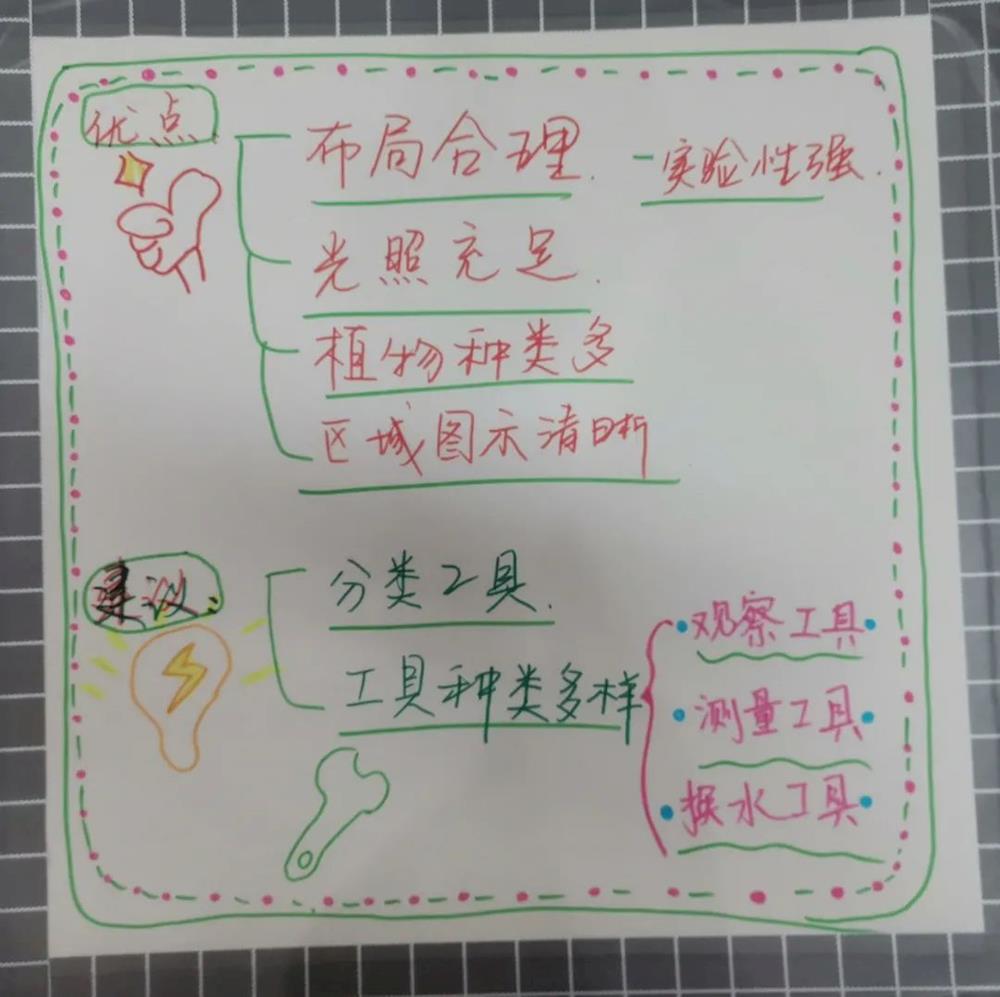 优点
布局合理. -实验性强.
光照充足.
植物种类多
区域图示清晰
建议:
分类工具.
工具种类多样
·观察工具·
·测量工具·
·换水工具·